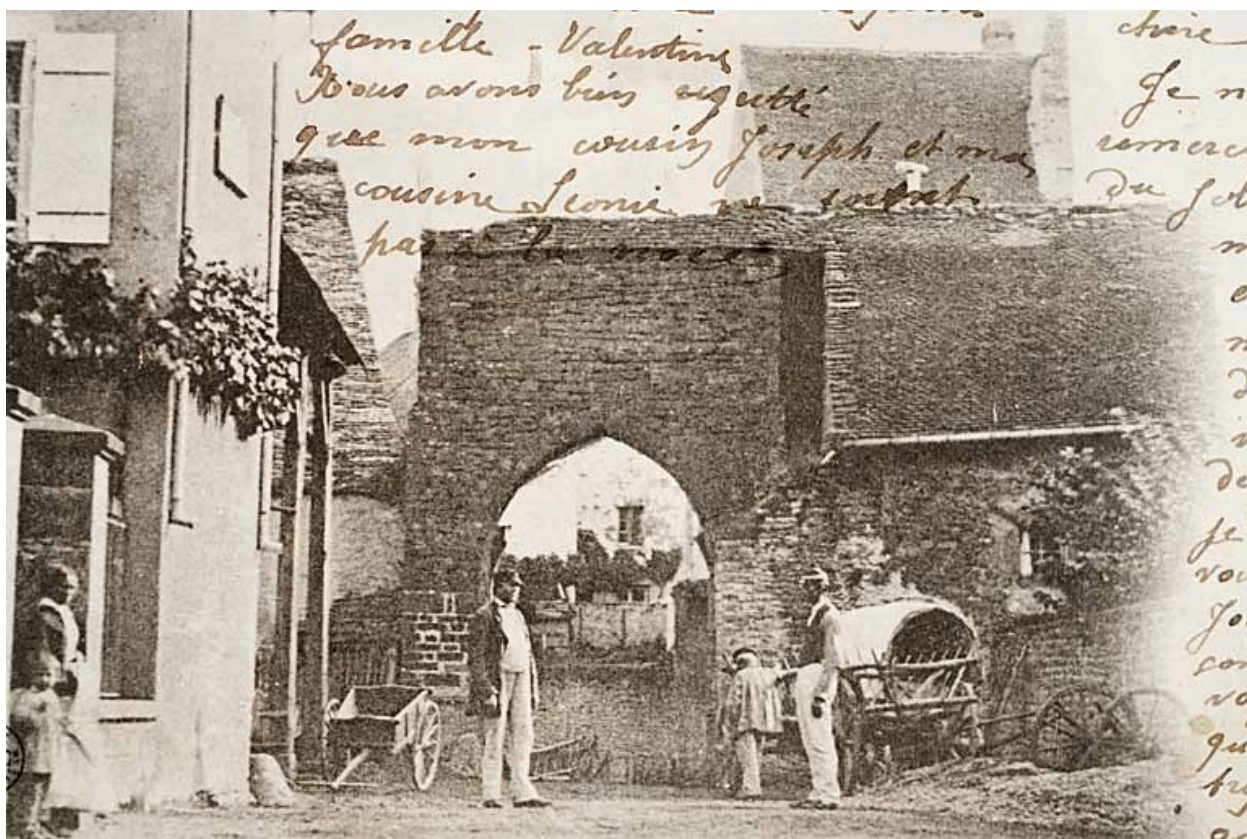 famille - Valentine
Nous avons bien regretté
que mon cousin Joseph et ma
cousine Leonie ne soient
pas à la noce
Je n
remerci
du jol
m
e
n
d
i
de
je
vou
Jo
vo
qu